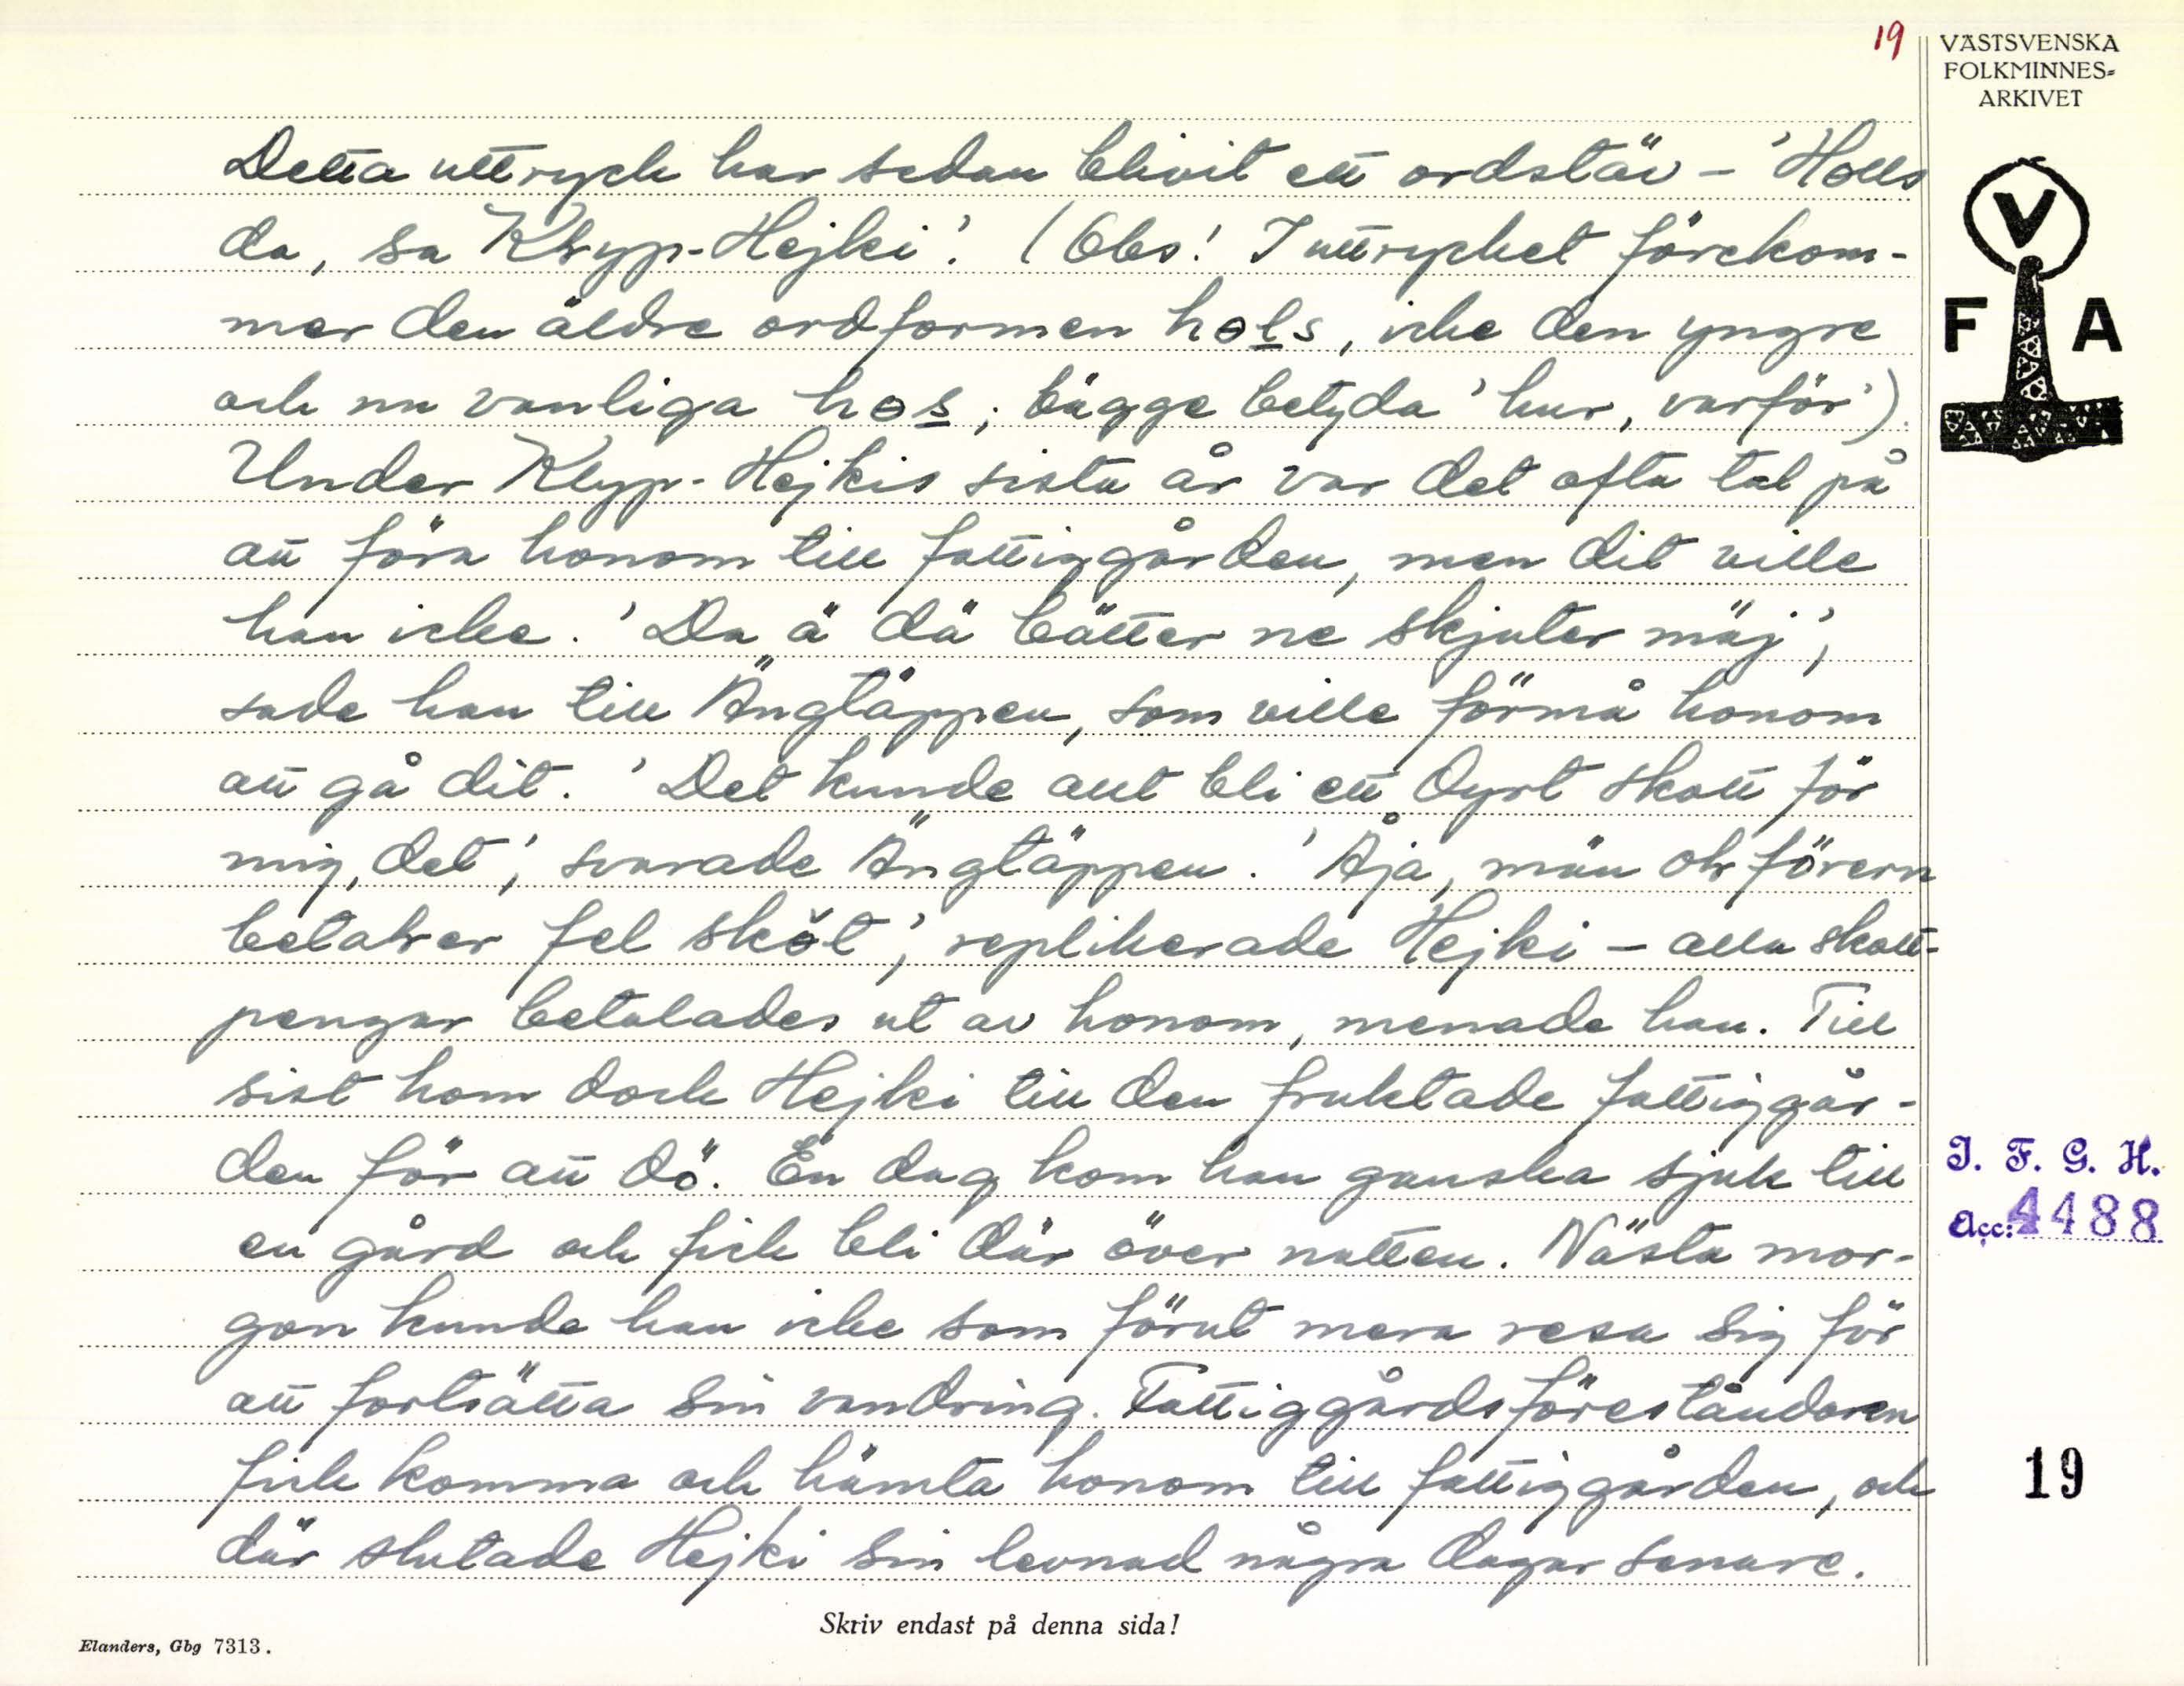 19
VÄSTSVENSKA
FOLKMINNES-
ARKIVET
V
F A
Detta uttryck har sedan blivit ett ordstäv – 'Hølls
da, sa Klypp-Hejki'. (Obs! I uttrycket förekom-
mer den äldre ordformen høls, icke den yngre
och nu vanliga høs; bägge betyda 'hur, varför')
Under Klyp-Hejkis sista år var det ofta tal på
att föra honom till fattiggården, men dit ville
han icke. 'Da ä dä bätter ne skjuter mäj',
sade han till Ängtäppen, som ville förmå honom
att gå dit. 'Det kunde allt bli ett dyrt skott för
mig, det', svarade Ängtäppen. 'Åja, män olr förern
betalrer fel sköt', replikerade Hejki – alla skott-
pengar betalades ut av honom, menade han. Till
sist kom dock Hejki till den fruktade fattiggår-
den för att dö. En dag kom han ganska sjuk till
en gård och fick bli där över natten. Nästa mor-
gon kunde han icke som förut mera resa sig för
att fortsätta sin vandring. Fattiggårdsföreståndaren
fick komma och hämta honom till fattiggården, och
där slutade Hejki sin levnad några dagar senare.
I. F. G. H.
Acc: 4488
19
Skriv endast på denna sida!
Elanders, Gbg 7313.